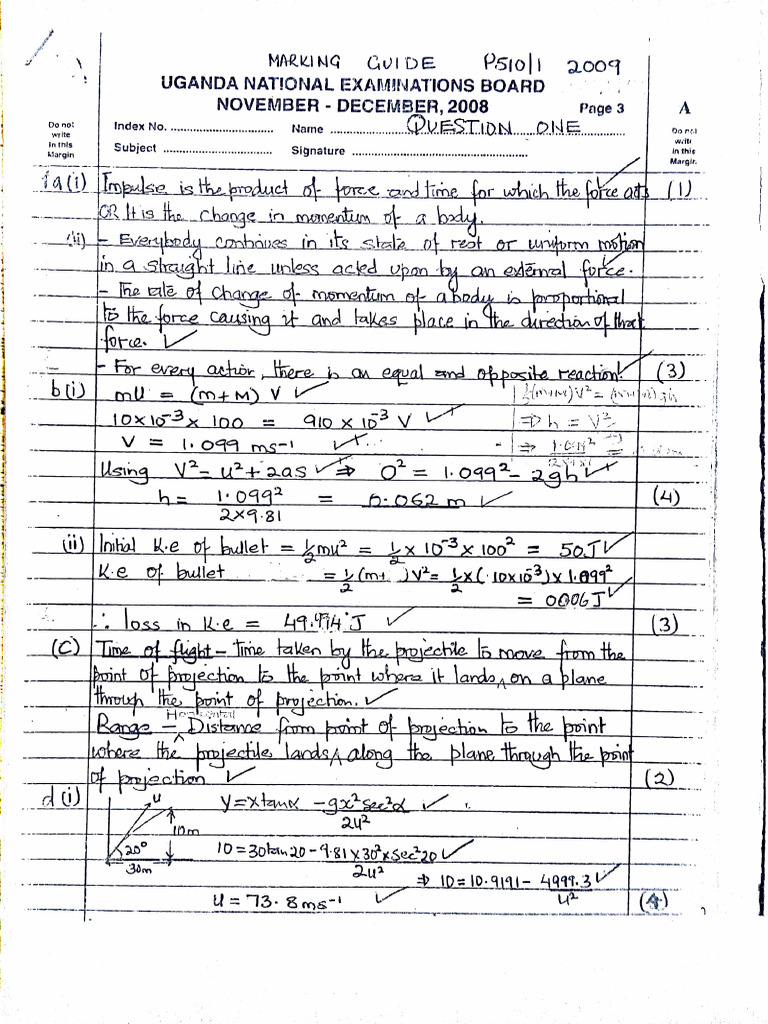 MARKING GUIDE P510/1 2009
UGANDA NATIONAL EXAMINATIONS BOARD
NOVEMBER - DECEMBER, 2008 Page 3 A
Do not write in this Margin
Index No. ............ Name ............ QUESTION ONE
Do not write in this Margin.
Subject ............ Signature ............
1a(i) Impulse is the product of force and time for which the force acts (1)
OR It is the change in momentum of a body.
(ii) - Everybody continues in its state of rest or uniform motion
in a straight line unless acted upon by an external force.
- The rate of change of momentum of a body is proportional
to the force causing it and takes place in the direction of that
force. ✓
- For every action, there is an equal and opposite reaction. (3)
b(i) mU = (m+M) V ✓
10×10⁻³ × 100 = 910 × 10⁻³ V ✓ ⇒ h = V²
V = 1.099 ms⁻¹ ✓
Using V² = u² + 2as ✓ ⇒ 0² = 1.099² - 2gh ✓
h = 1.099² / 2×9.81 = 0.062 m ✓ (4)
(ii) Initial K.e of bullet = ½mu² = ½ × 10⁻³ × 100² = 50J ✓
K.e of bullet = ½(m+ )V² = ½×(.10×10⁻³)×1.099²
= 0.006J ✓
∴ loss in K.e = 49.994 J ✓ (3)
(C) Time of flight - Time taken by the projectile to move from the
point of projection to the point where it lands ^ on a plane
through the point of projection. ✓
Horizontal
Range - ^ Distance from point of projection to the point
where the projectile lands ^ along the plane through the point
of projection ✓ (2)
d(i) u y = xtanα - gx²sec²α / 2u² ✓
10m
20° 10 = 30tan20 - 9.81×30²×sec²20 / 2u² ✓
30m ⇒ 10 = 10.9191 - 4999.3 / u² ✓
U = 73.8 ms⁻¹ ✓ (4)